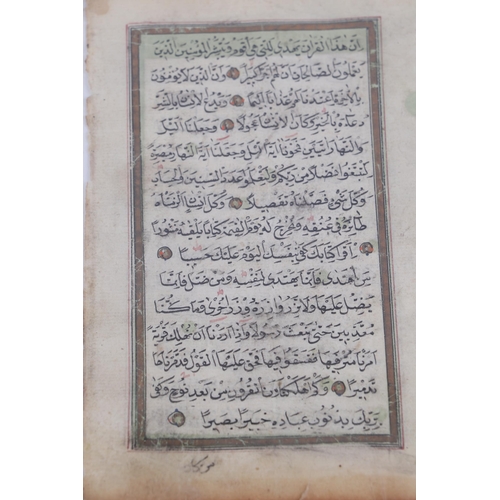 ان هذا القران يهدى للتى هى اقوم ويبشر المؤمنين الذين
يعملون الصالحات ان لهم اجرا كبيرا وان الذين لا يؤمنون
بالاخرة اعتدنا لهم عذابا اليما ويدع الانسان بالشر
دعاءه بالخير وكان الانسان عجولا وجعلنا اليل
والنهار ايتين فمحونا اية اليل وجعلنا اية النهار مبصرة
لتبتغوا فضلا من ربكم ولتعلموا عدد السنين والحساب
وكل شىء فصلناه تفصيلا وكل انسان الزمناه
طائره فى عنقه ونخرج له يوم القيمة كتابا يلقيه منشورا
اقرا كتابك كفى بنفسك اليوم عليك حسيبا
من اهتدى فانما يهتدى لنفسه ومن ضل فانما
يضل عليها ولا تزر وازرة وزر اخرى وما كنا
معذبين حتى نبعث رسولا واذا اردنا ان نهلك قرية
امرنا مترفيها ففسقوا فيها فحق عليها القول فدمرناها
تدميرا وكم اهلكنا من القرون من بعد نوح وكفى
بربك بذنوب عباده خبيرا بصيرا